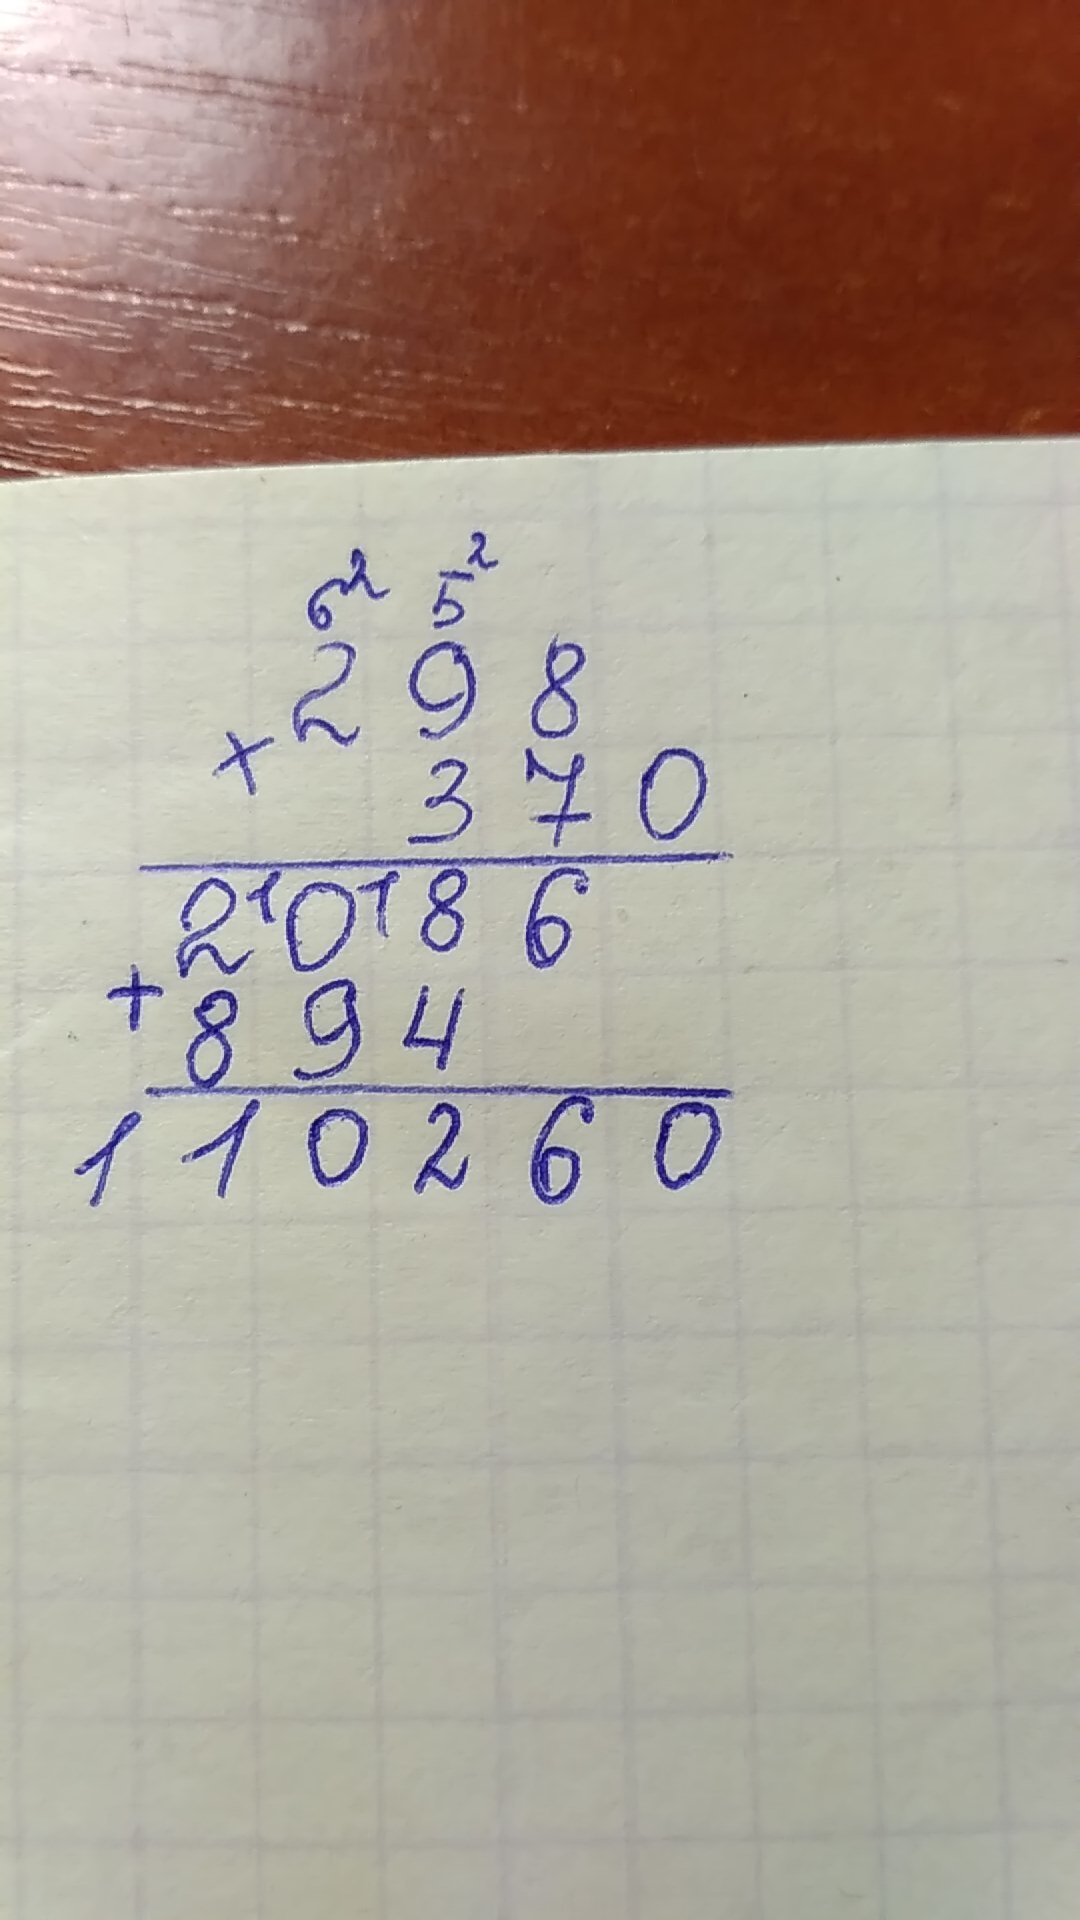 6² 5²
298
× 370
2¹0¹86
+ 894
110260